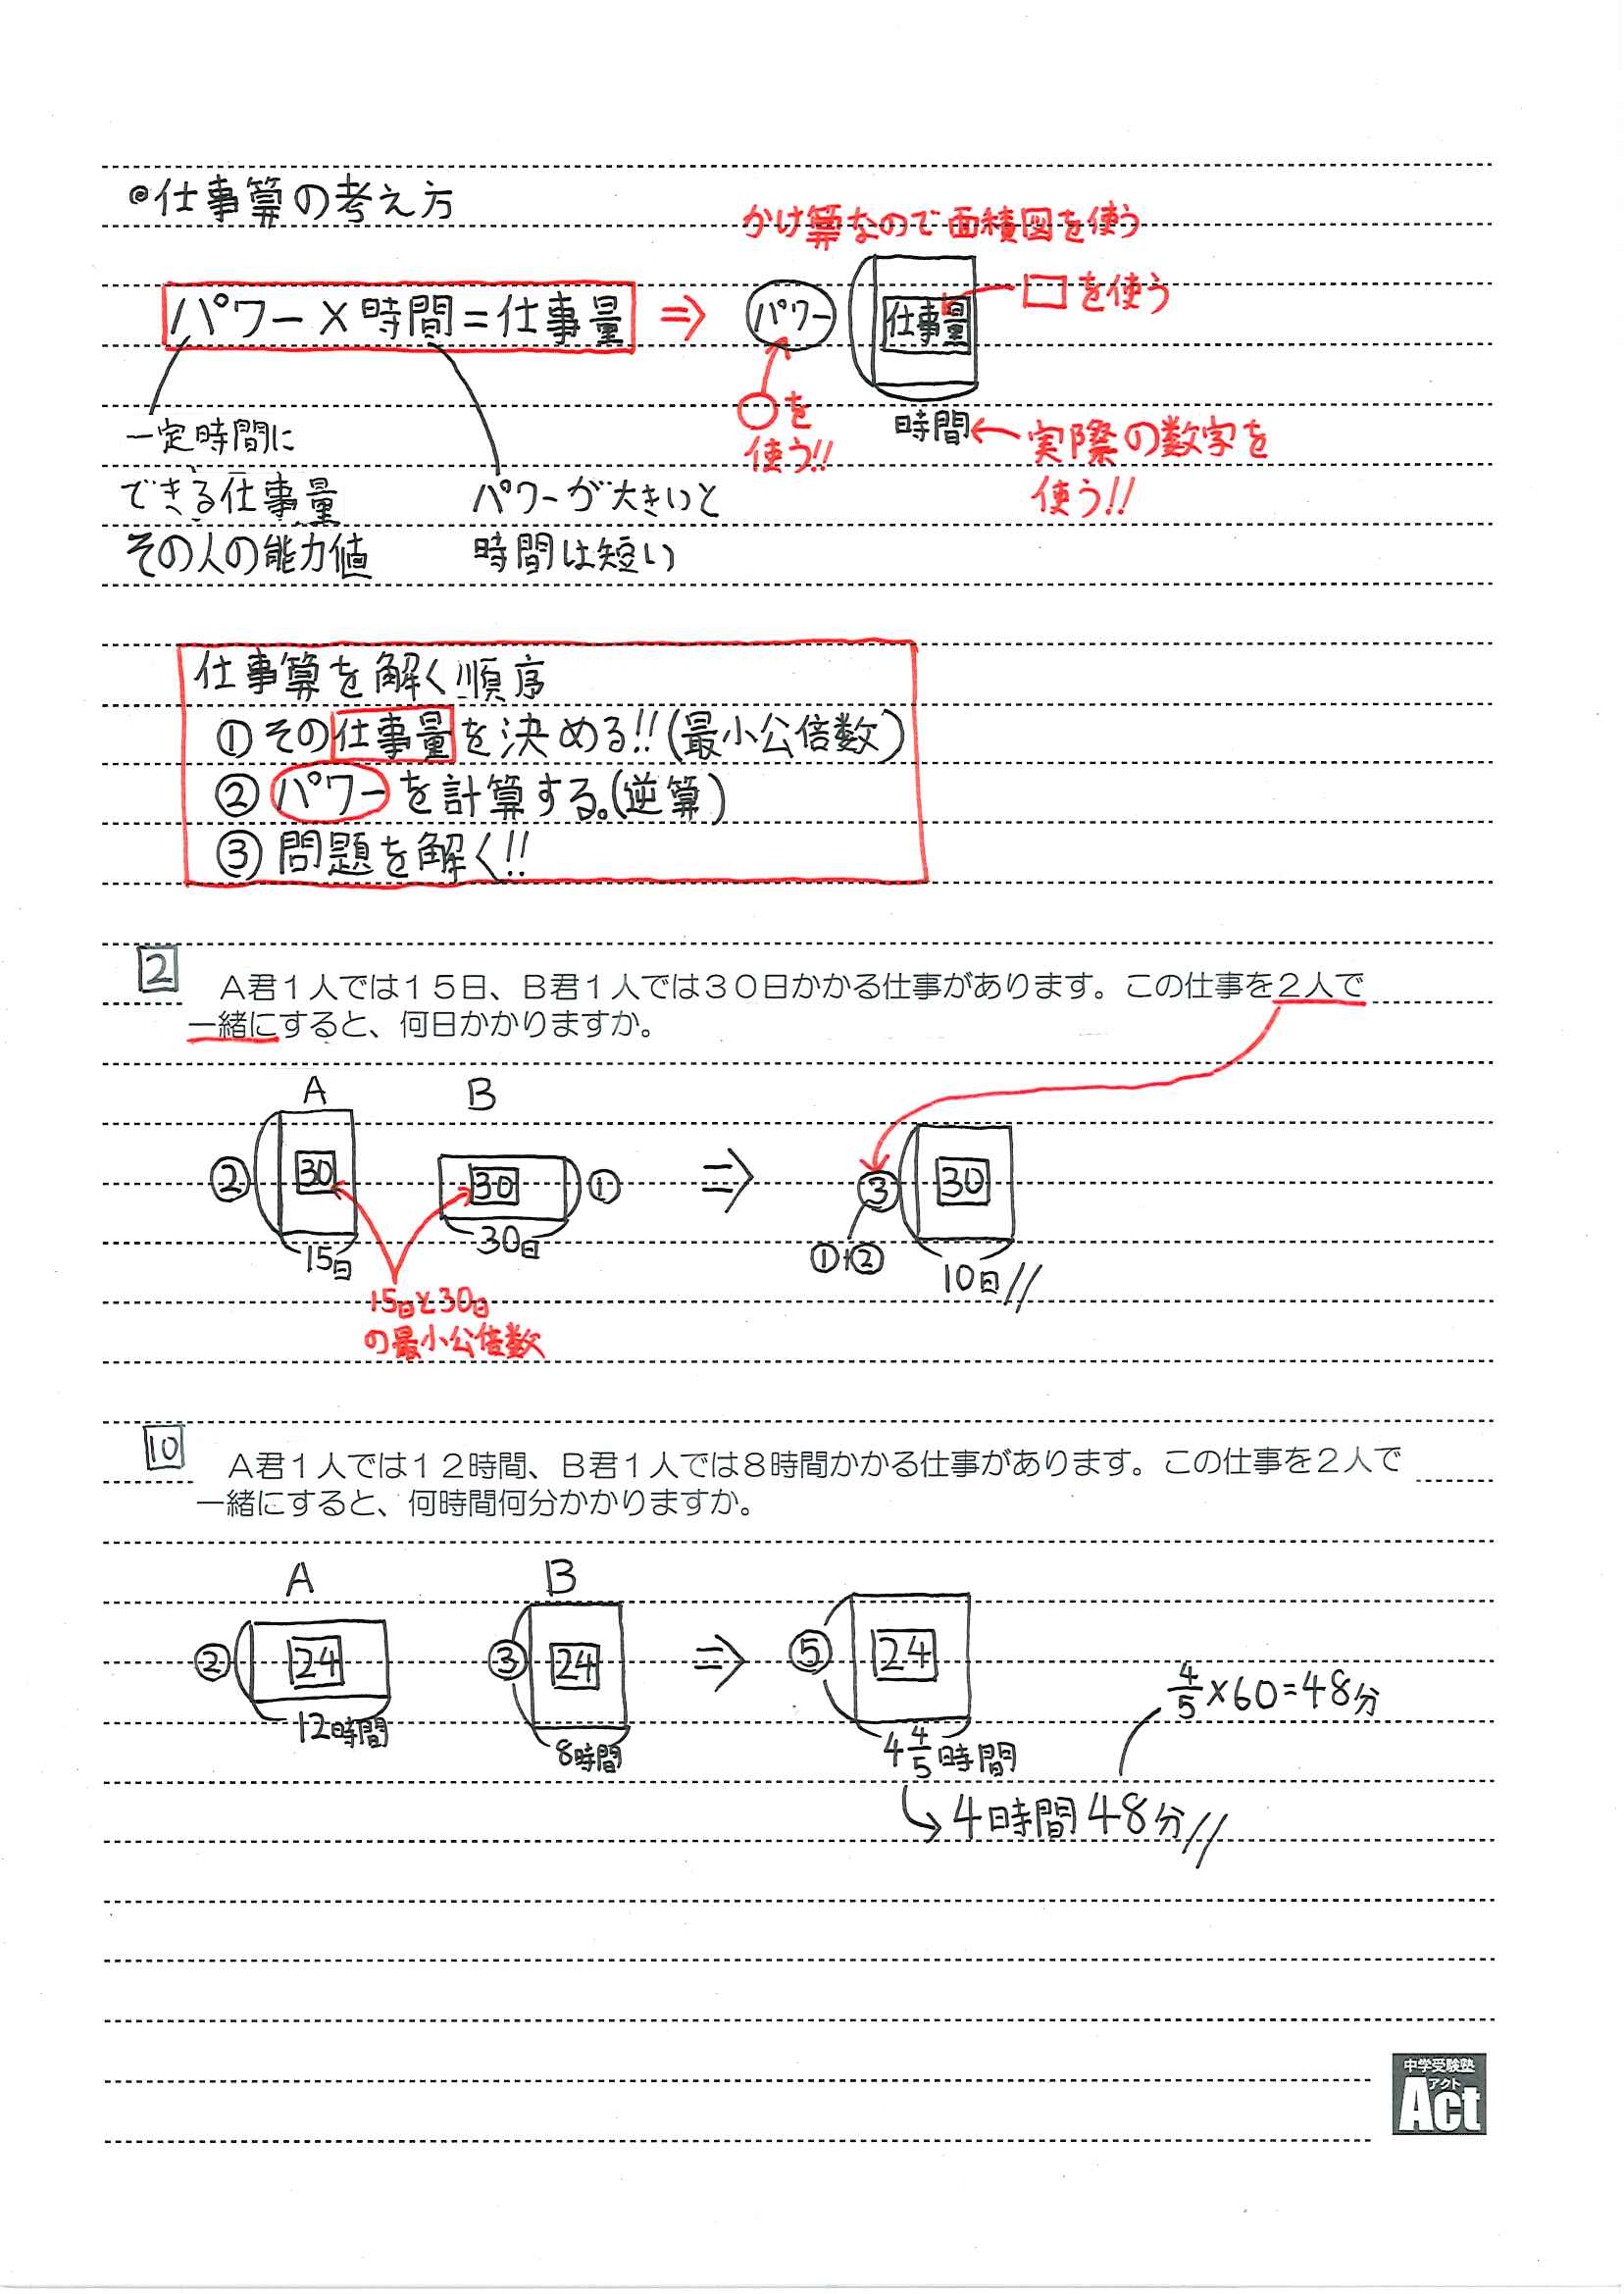 ◎仕事算の考え方
かけ算なので面積図を使う
パワー×時間=仕事量 ⇒ パワー 仕事量 ←□を使う
○を使う!!
時間←実際の数字を
使う!!
一定時間に
できる仕事量
その人の能力値
パワーが大きいと
時間は短い
仕事算を解く順序
① その仕事量を決める!!(最小公倍数)
② パワーを計算する。(逆算)
③ 問題を解く!!
2
A君1人では15日、B君1人では30日かかる仕事があります。この仕事を2人で
一緒にすると、何日かかりますか。
A B
② 30 30 ① ⇒ ③ 30
15日 30日 ①+② 10日//
15日と30日
の最小公倍数
10
A君1人では12時間、B君1人では8時間かかる仕事があります。この仕事を2人で
一緒にすると、何時間何分かかりますか。
A B
② 24 ③ 24 ⇒ ⑤ 24
12時間 8時間 4 4/5時間
4/5×60=48分
→4時間48分//
中学受験塾
アクト
Act